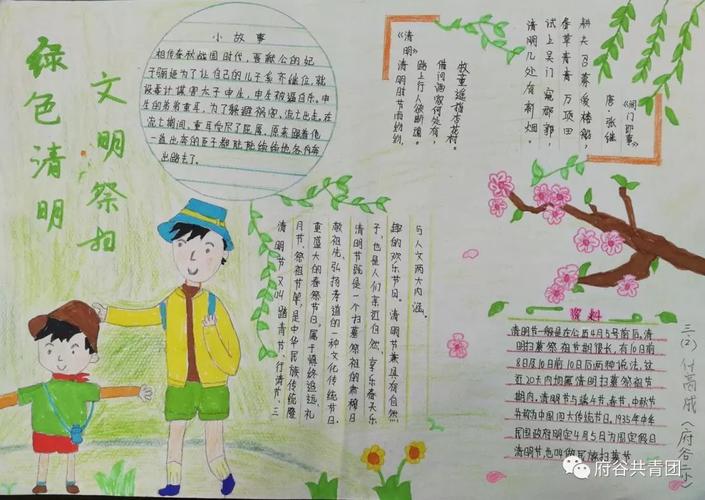 绿色清明
文明祭扫
小故事
相传春秋战国时代,晋献公的妃
子骊姬为了让自己的儿子奚齐继位,就
设毒计谋害太子申生,申生被逼自杀。申
生的弟弟重耳,为了躲避祸害,流亡出走。在
流亡期间,重耳受尽了屈辱。原来跟着他
一道出奔的臣子都陆陆续续地各奔
出路去了。
《清明》
清明时节雨纷纷,
路上行人欲断魂。
借问酒家何处有,
牧童遥指杏花村。
《阊门即事》
唐·张继
耕夫召募爱楼船,
春草青青万项田
试上吴门窥郡郭,
清明几处有新烟。
清明节又叫踏青节、行清节、三
月节、祭祖节等,是中华民族传统隆
重盛大的春祭节日,属于慎终追远、礼
敬祖先、弘扬孝道的一种文化传统节日。
清明节既是一个扫墓祭祖的肃穆日
子,也是人们亲近自然、享乐春天乐
趣的欢乐节日。清明节兼具有自然
与人文两大内涵。
资料
清明节一般是在公历4月5号前后,清
明扫墓祭祖节期很长,有10日前
8日及10日前10日后两种说法,这
近20天内均属清明扫墓祭祖节
期内,清明节与端午节、春节、中秋节
并称为中国四大传统节日,1935年中华
民国政府明定4月5日为国定假日
清明节,也叫做民族扫墓节
三(2) 付高成(府谷二小)
府谷共青团